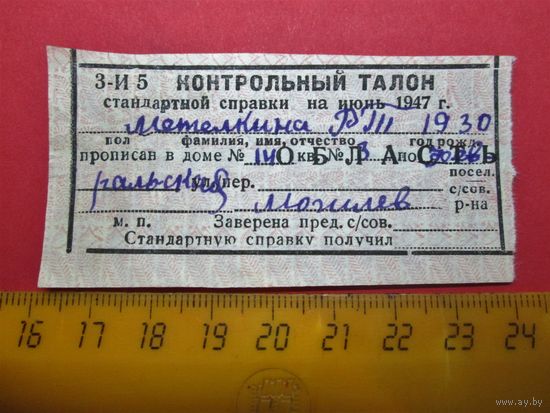 З-И 5 КОНТРОЛЬНЫЙ ТАЛОН
стандартной справки на июнь 1947 г.
Метелкина Р. Т. 1930
пол фамилия, имя, отчество год рожд.
прописан в доме № кв. № 3 по
ОБЛАСТЬ
посел.
ул. пер. с/сов.
Могилев р-на
м. п. Заверена пред. с/сов.
Стандартную справку получил
16 17 18 19 20 21 22 23 24
www.ay.by